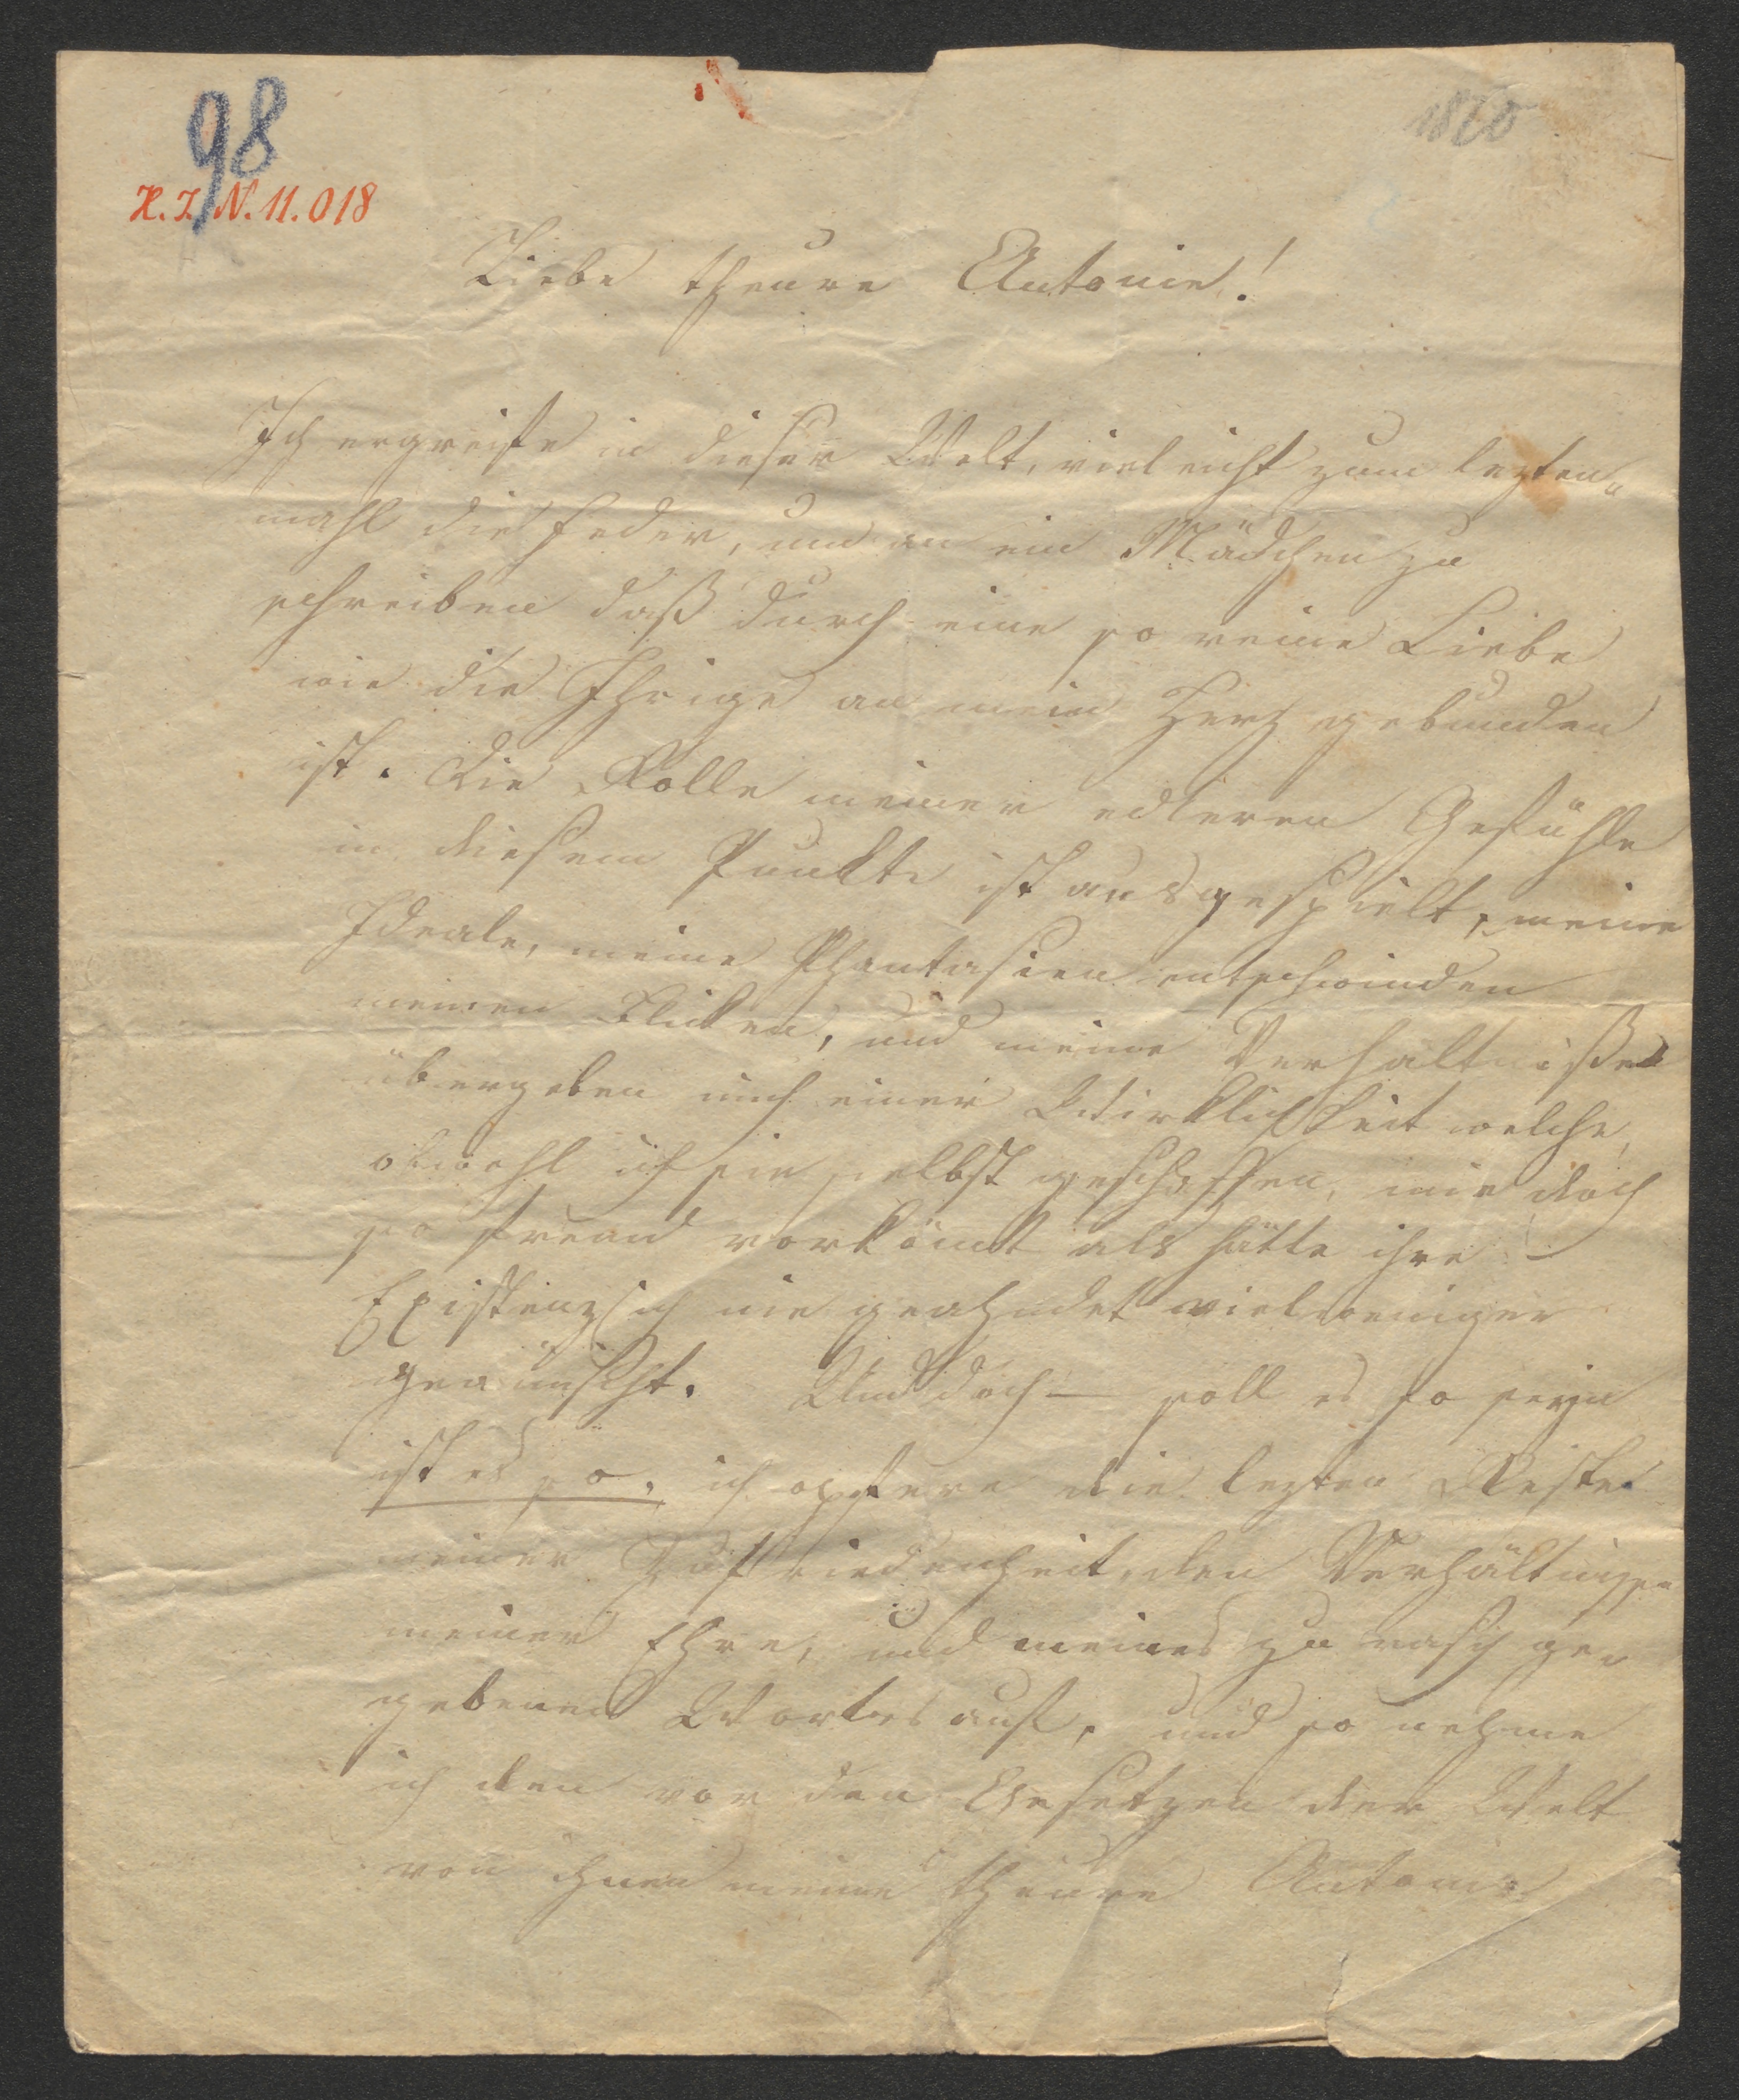 98
1820
H.I.N. 11.018
Liebe theure Antonie!
Ich ergreiffe in dieser Welt, vieleicht zum lezten„
mahl die Feder, um an ein Mädchen zu
schreiben daß durch eine so reine Liebe
wie die Ihrige an mein Herz gebunden
ist. Die Rolle meiner edleren Gefühle
in diesem Punkte ist ausgespielt, meine
Ideale, meine Phantasien entschwinden
meinen Blicken, und meine Verhältniße
übergeben mich einer Wirklichkeit welche,
obwohl ich sie selbst geschaffen, mir doch
so fremd vorkömt als hätte ihre
Existenz ich nie geahndet vielweniger
gewünscht. Und doch — soll es so seyn
ist es so, ich opfere die lezten Reste
meiner Zufriedenheit, den Verhältnissen
meiner Ehre, und meines zu rasch ge„
gebenen Wortes auf, und so nehme
ich den vor den Gesetzen der Welt
von ihnen meine theure Antonie